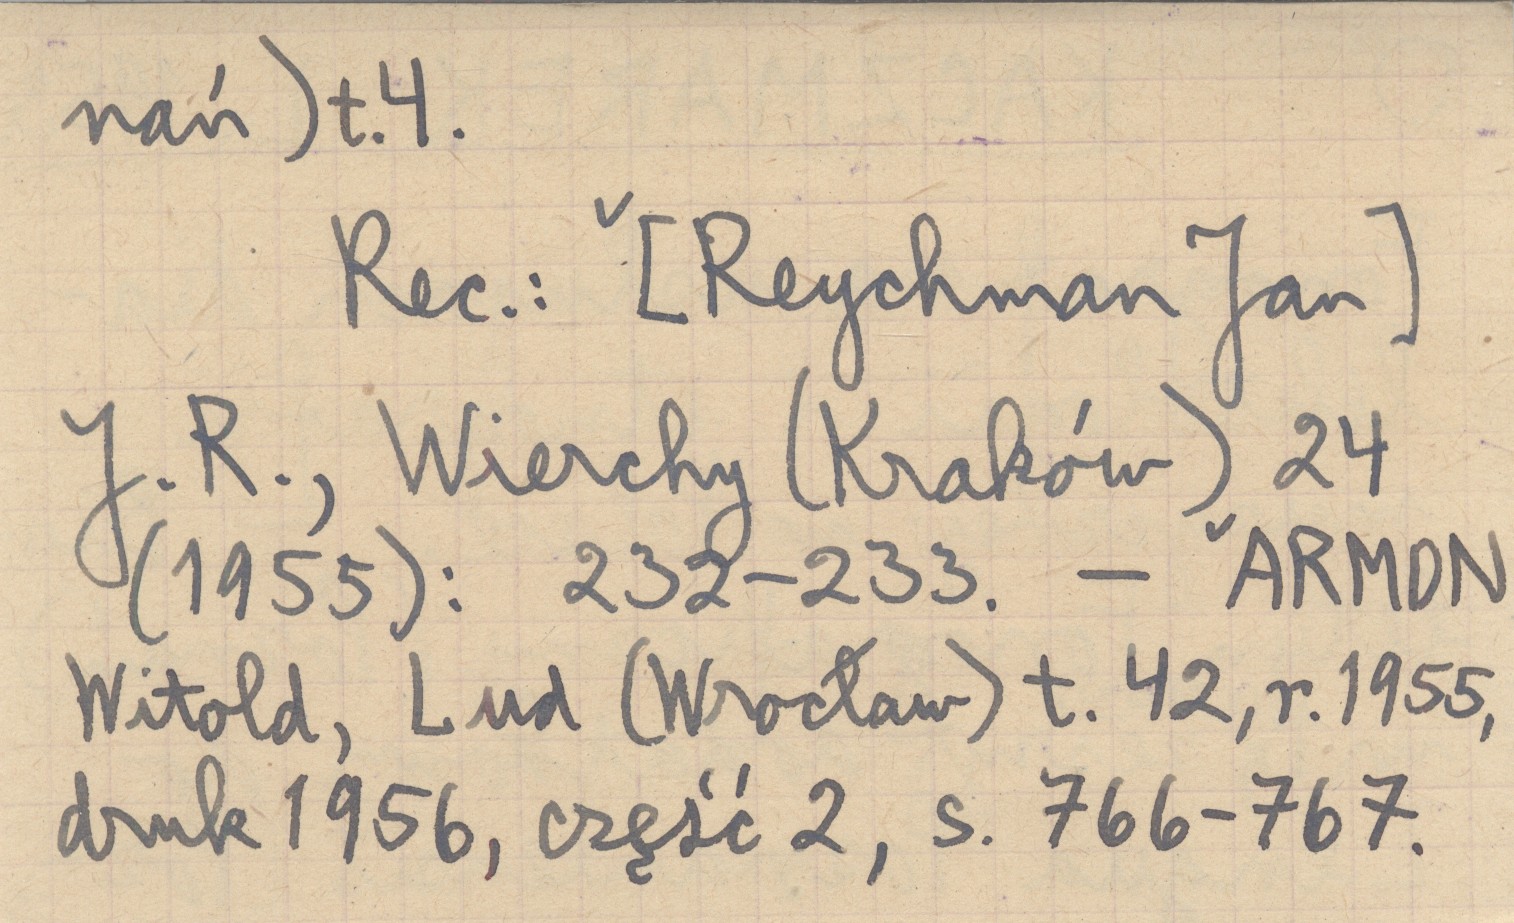 nań) t.4.
Rec.: ˅[Reychman Jan]
J.R., Wierchy (Kraków) 24
(1955): 232-233. — ˅ARMON
Witold, Lud (Wrocław) t. 42, r. 1955,
druk 1956, część 2, s. 766-767.